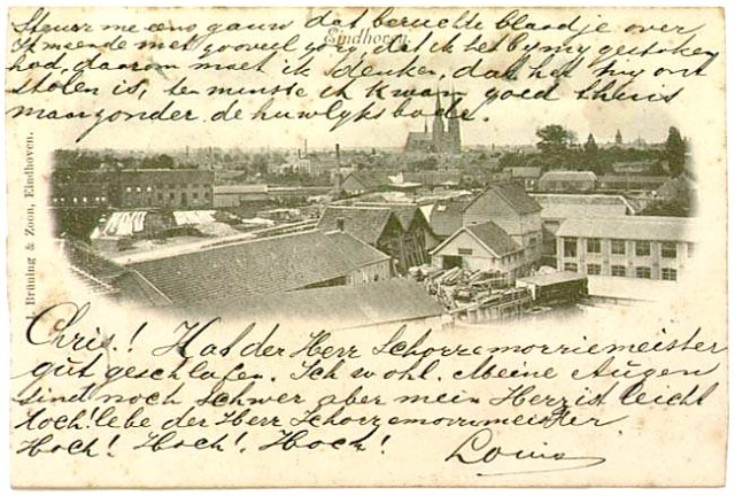 Stuur me eens gauw dat beruchte blaadje over
Ik meende met zooveel zorg, dat ik het bij mij gestoken
had, daarom moet ik denken, dat het mij ont
stolen is, ten minste ik kwam goed thuis
maar zonder de huwlyksbode.
Eindhoven.
J. Brüning & Zoon, Eindhoven.
Chris! Hat der Herr Schorremorriemeister
gut geschlafen. Ich wohl. Meine Augen
sind noch schwer aber mein Herz ist leicht
Hoch! lebe der Herr Schorremorriemeister
Hoch! Hoch! Hoch! Louis